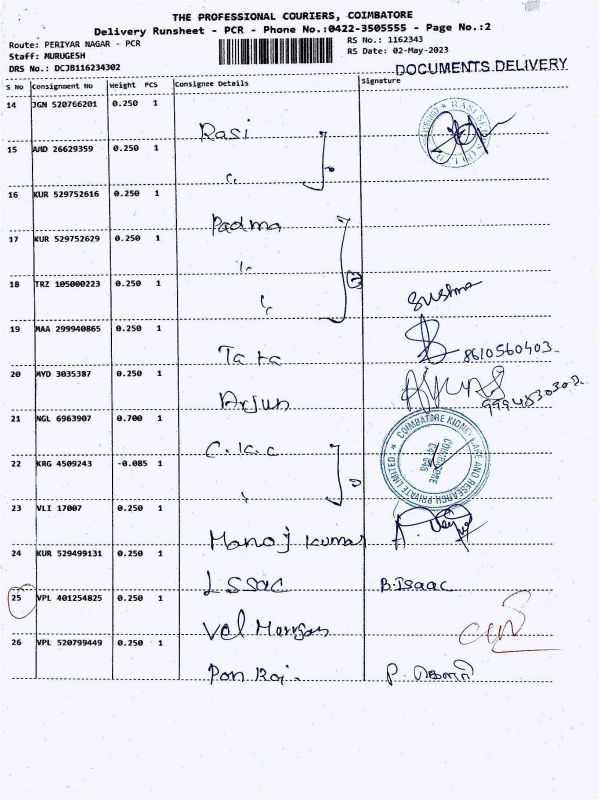 THE PROFESSIONAL COURIERS, COIMBATORE
Delivery Runsheet - PCR - Phone No.:0422-3505555 - Page No.:2
Route: PERIYAR NAGAR - PCR
RS No.: 1162343
Staff: MURUGESH
RS Date: 02-May-2023
DRS No.: DCJB116234302
DOCUMENTS DELIVERY
S No Consignment No Weight PCS Consignee Details Signature
14 JGN 520766201 0.250 1
Rasi
15 AMD 26629359 0.250 1
"
16 KUR 529752616 0.250 1
Padma
17 KUR 529752629 0.250 1
"
18 TRZ 105000223 0.250 1
" Sushma
19 MAA 299940865 0.250 1
Tara 8610560403
20 MYD 3035387 0.250 1
Arjun
21 NGL 6963907 0.700 1
COIMBATORE KIDNEY CARE AND RESEARCH PRIVATE LIMITED
COIMBATORE
641 045
22 KRG 4509243 -0.085 1
"
23 VLI 17007 0.250 1
Manoj Kumar
24 KUR 529499131 0.250 1
Issac B.Isaac
25 VPL 401254825 0.250 1
Vel Murugan
26 VPL 520799449 0.250 1
Pon Raj.